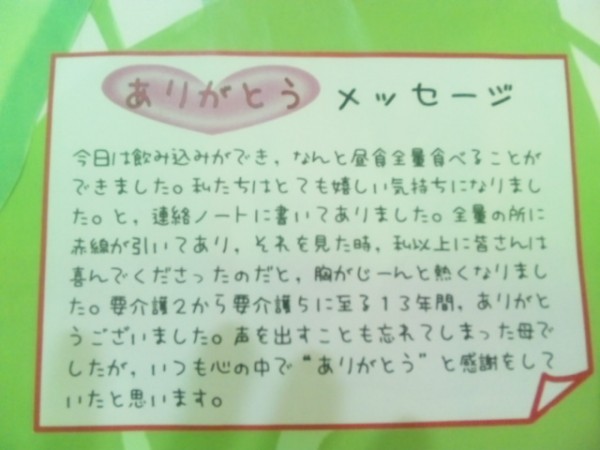 ありがとう メッセージ
今日は飲み込みができ、なんと昼食全量食べることが
できました。私たちはとても嬉しい気持ちになりまし
た。と、連絡ノートに書いてありました。全量の所に
赤線が引いてあり、それを見た時、私以上に皆さんは
喜んでくださったのだと、胸がじーんと熱くなりまし
た。要介護2から要介護5に至る13年間、ありがと
うございました。声を出すことも忘れてしまった母で
したが、いつも心の中で“ありがとう”と感謝をして
いたと思います。